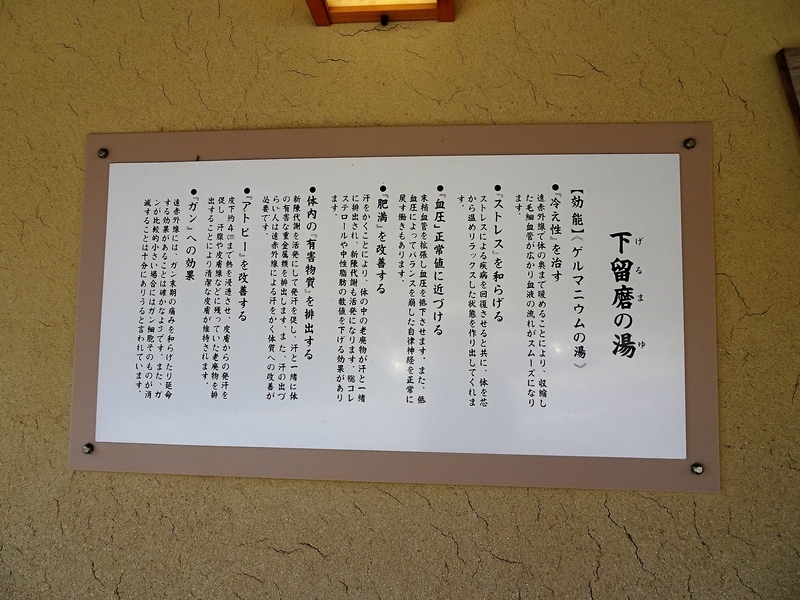 げるまゆ
下留磨の湯
【効能】《ゲルマニウムの湯》
●『冷え性』を治す
遠赤外線で体の奥まで暖めることにより、収縮し
た毛細血管が広かり血液の流れがスムーズになり
ます。
●『ストレス』を和らげる
ストレスによる疾病を回復させると共に、体を芯
から温めリラックスした状態を作り出してくれま
す。
●『血圧』正常値に近づける
末梢血管を拡張し血圧を低下させます。また、低
血圧によってバランスを崩した自律神経を正常に
戻す働きもあります。
●『肥満』を改善する
汗をかくことにより、体の中の老廃物が汗と一緒
に排出され、新陳代謝も活発になります。総コレ
ステロールや中性脂肪の数値を下げる効果があり
ます。
●体内の『有害物質』を排出する
新陳代謝を活発にして発汗を促し、汗と一緒に体
の有害な重金属類を排出します。また、汗の出づ
らい人は遠赤外線による汗をかく体質への改善が
必要です。
●『アトピー』を改善する
皮下約4㎝まで熱を浸透させ、皮膚からの発汗を
促し、汗腺や皮膚線などに残っていた老廃物を排
出することにより清潔な皮膚が維持されます。
●『ガン』への効果
遠赤外線には、ガン末期の痛みを和らげたり延命
する効果があることは確かなようです。また、ガ
ンが比較的小さい場合にはガン細胞そのものが消
滅することは十分にありうると言われています。